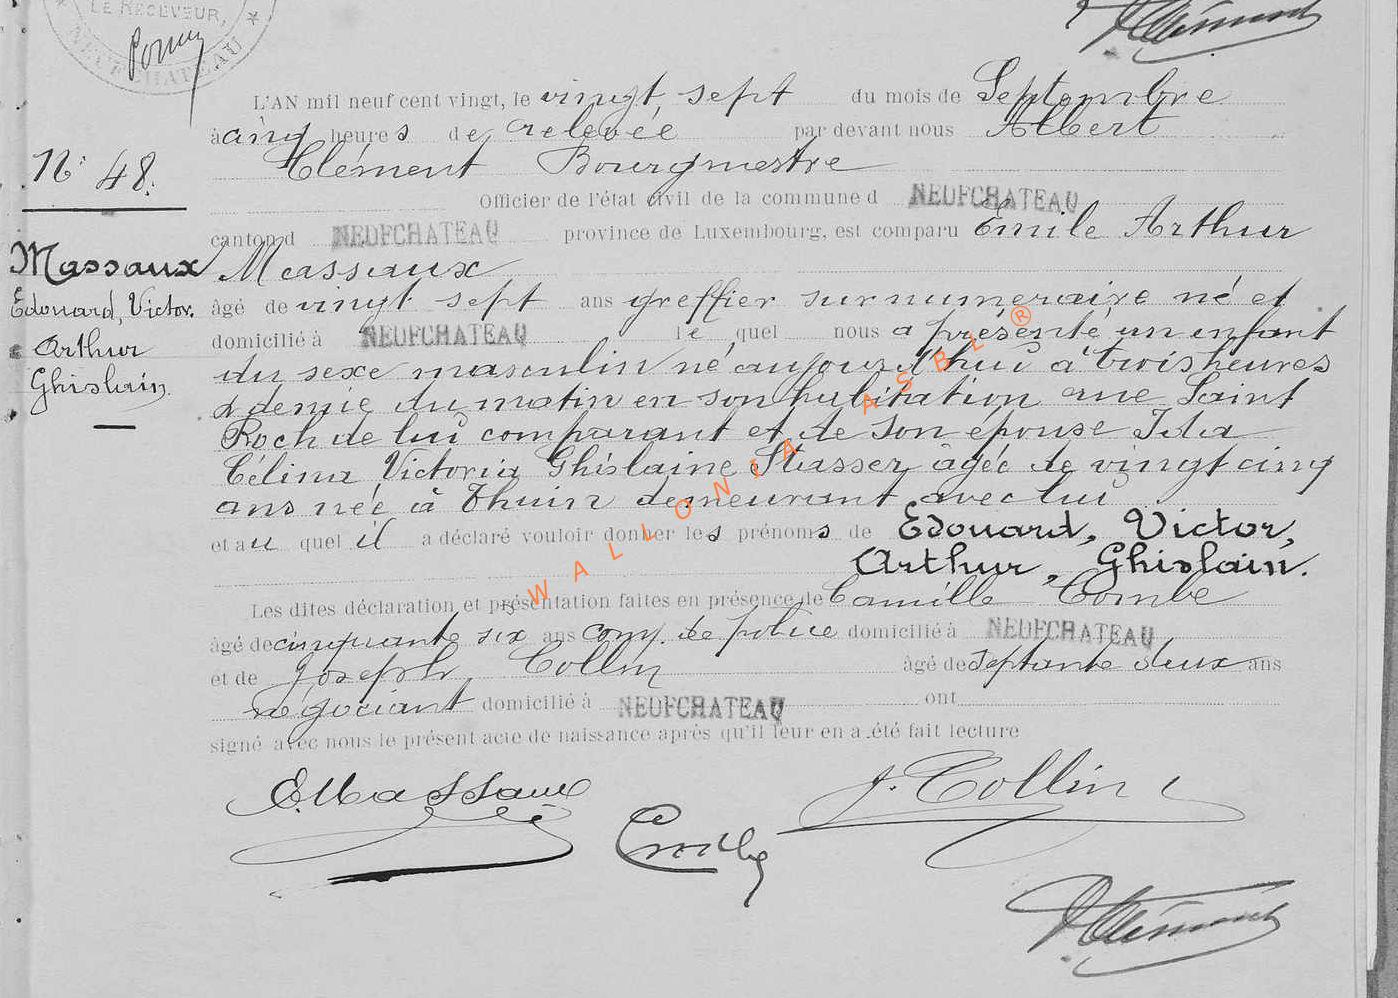 LE RECEVEUR,
NEUFCHATEAU
L'AN mil neuf cent vingt, le vingt sept du mois de Septembre
à cinq heures de relevée par devant nous Albert
N° 48.
Clément Bourgmestre
Officier de l'état civil de la commune d NEUFCHATEAU
canton d NEUFCHATEAU province de Luxembourg, est comparu Emile Arthur
Massaux
Edouard, Victor.
Arthur
Ghislain.
Massaux
âgé de vingt sept ans greffier surnuméraire né et
domicilié à NEUFCHATEAU le quel nous a présenté un enfant
du sexe masculin né aujourd'hui à trois heures
& demie du matin en son habitation rue Saint
Roch de lui comparant et de son épouse Ida
Célina Victoria Ghislaine Stasser âgée de vingt cinq
ans née à Thuin demeurant avec lui
et au quel il a déclaré vouloir donner les prénoms de Edouard, Victor,
Arthur, Ghislain.
Les dites déclaration et présentation faites en présence de Camille Combe
âgé de cinquante six ans com. de police domicilié à NEUFCHATEAU
et de Joseph Collin âgé de septante deux ans
négociant domicilié à NEUFCHATEAU ont
signé avec nous le présent acte de naissance après qu'il leur en a été fait lecture
E. Massaux
J. Collin
WALLONIA ASBL ®